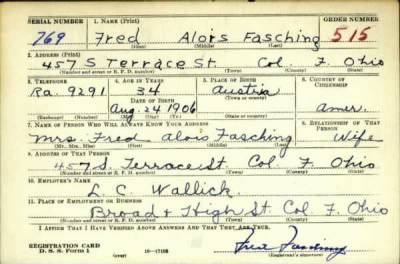 SERIAL NUMBER 1. NAME (Print) ORDER NUMBER
769 Fred Alois Fasching 515
(First) (Middle) (Last)
2. ADDRESS (Print)
457 S Terrace St. Col. F. Ohio
(Number and street or R. F. D. number) (Town) (County) (State)
3. TELEPHONE 4. AGE IN YEARS 5. PLACE OF BIRTH 6. COUNTRY OF CITIZENSHIP
Ra. 9291 34 Austria
DATE OF BIRTH (Town or county)
Aug. 24 1906 Amer.
(Exchange) (Number) (Mo.) (Day) (Yr.) (State or country)
7. NAME OF PERSON WHO WILL ALWAYS KNOW YOUR ADDRESS 8. RELATIONSHIP OF THAT PERSON
Mrs. Fred Alois Fasching Wife
(Mr., Mrs., Miss) (First) (Middle) (Last)
9. ADDRESS OF THAT PERSON
457 S. Terrace St. Col. F. Ohio
(Number and street or R. F. D. number) (Town) (County) (State)
10. EMPLOYER'S NAME
L. C. Wallick
11. PLACE OF EMPLOYMENT OR BUSINESS
Broad & High St. Col F. Ohio
(Number and street or R. F. D. number) (Town) (County) (State)
I AFFIRM THAT I HAVE VERIFIED ABOVE ANSWERS AND THAT THEY ARE TRUE.
REGISTRATION CARD
D. S. S. Form 1 Fred Fasching
(over) (Registrant's signature)